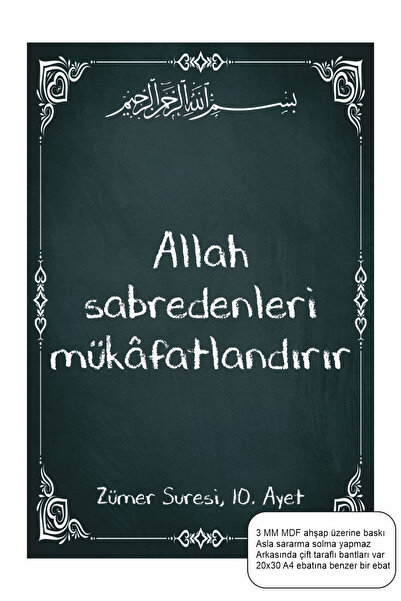 بسم الله الرحمن الرحيم
Allah
sabredenleri
mükâfatlandırır
Zümer Suresi, 10. Ayet
3 MM MDF ahşap üzerine baskı
Asla sararma solma yapmaz
Arkasında çift taraflı bantları var
20x30 A4 ebatına benzer bir ebat